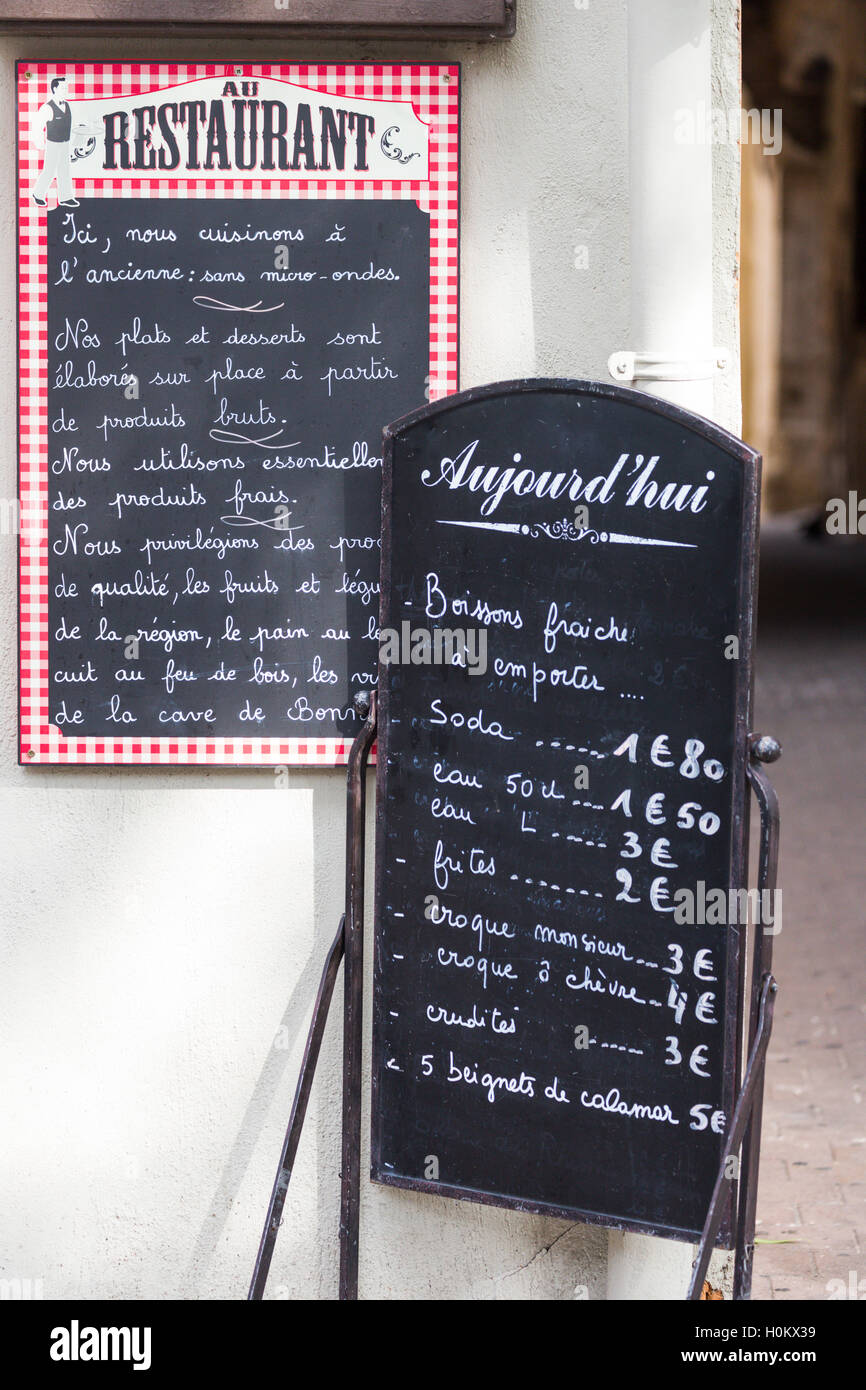 AU
RESTAURANT
Ici, nous cuisinons à
l'ancienne : sans micro-ondes.
Nos plats et desserts sont
élaborés sur place à partir
de produits bruts.
Nous utilisons
des produits frais.
Nous privilégions des
de qualité, les fruits et
de la région, le pain au
cuit au feu de bois, les
de la cave de
Aujourd'hui
- Boissons fraiche
à emporter ....
Soda ...... 1€80
eau 50cl ... 1€50
eau L ..... 3€
- frites ........ 2€
- croque monsieur... 3€
- croque ô chèvre... 4€
- crudités ..... 3€
- 5 beignets de calamar 5€
alamy
Image ID: H0KX39
www.alamy.com